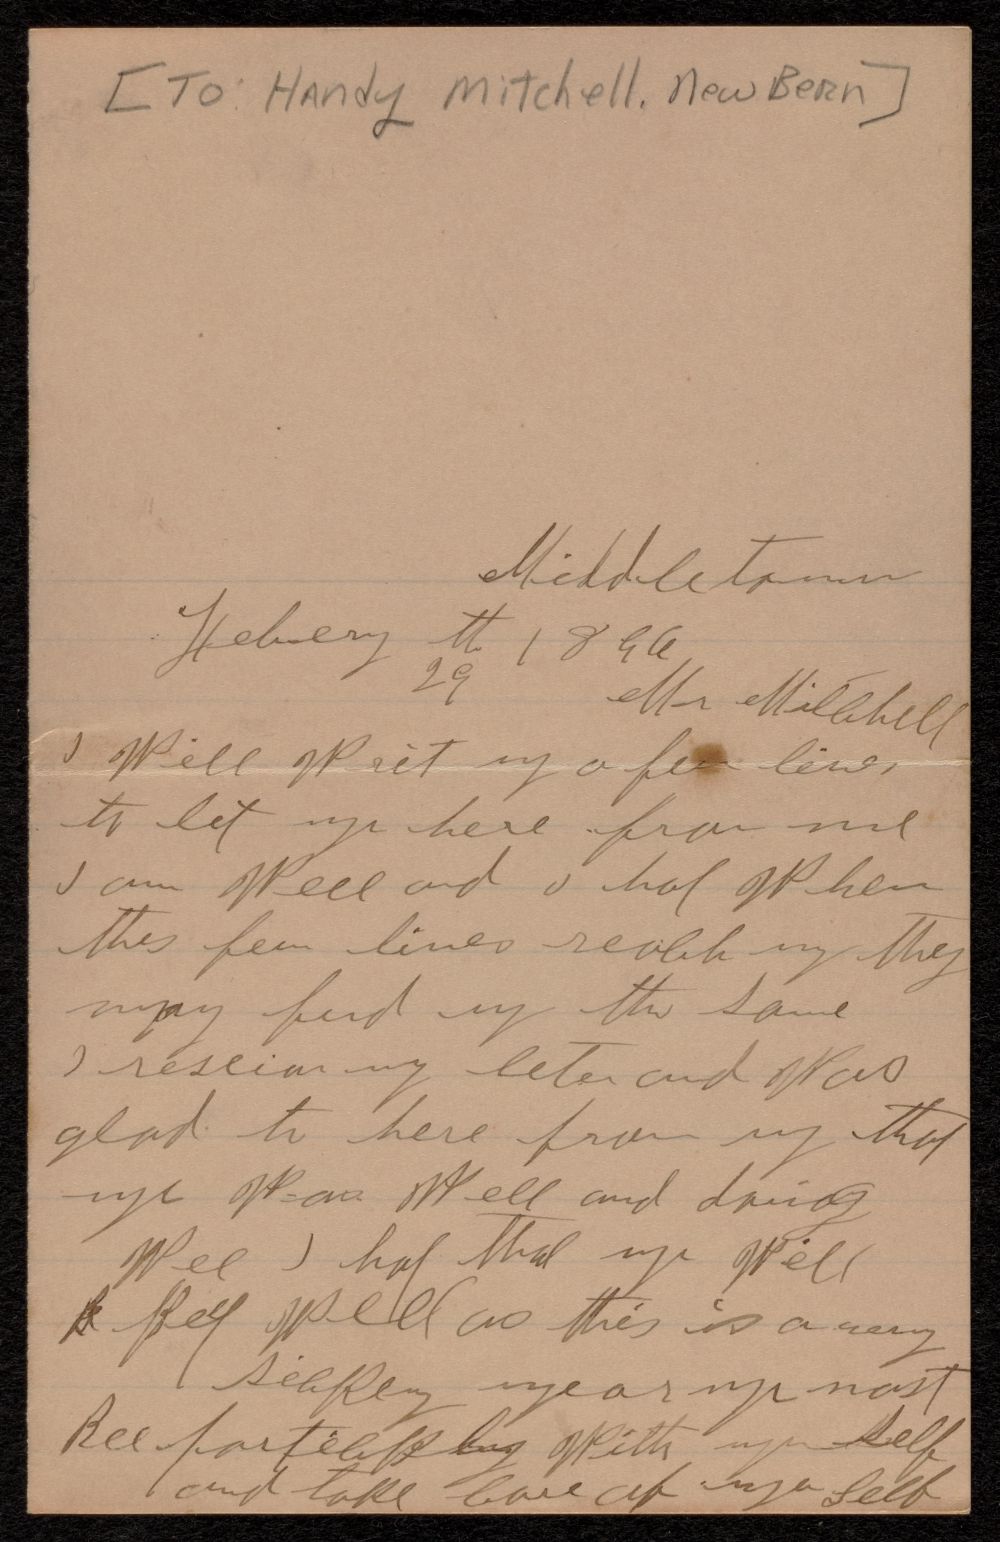 [To: Handy Mitchell. New Bern]
Middletown
Febuery th 1896
29
Mr Mitlchell
I Will Writ ug a few lines
to let ugr here from me
I am Well and I hof When
this few lines reach ug they
may find ug the same
I resciav ug leter and Was
glad to here from ug that
ugr Was Well and doing
Wel I hof that ugr Will
Kep Well as this is a very
sickkey year ugr most
Bee with ugr self
and take care of ugr self